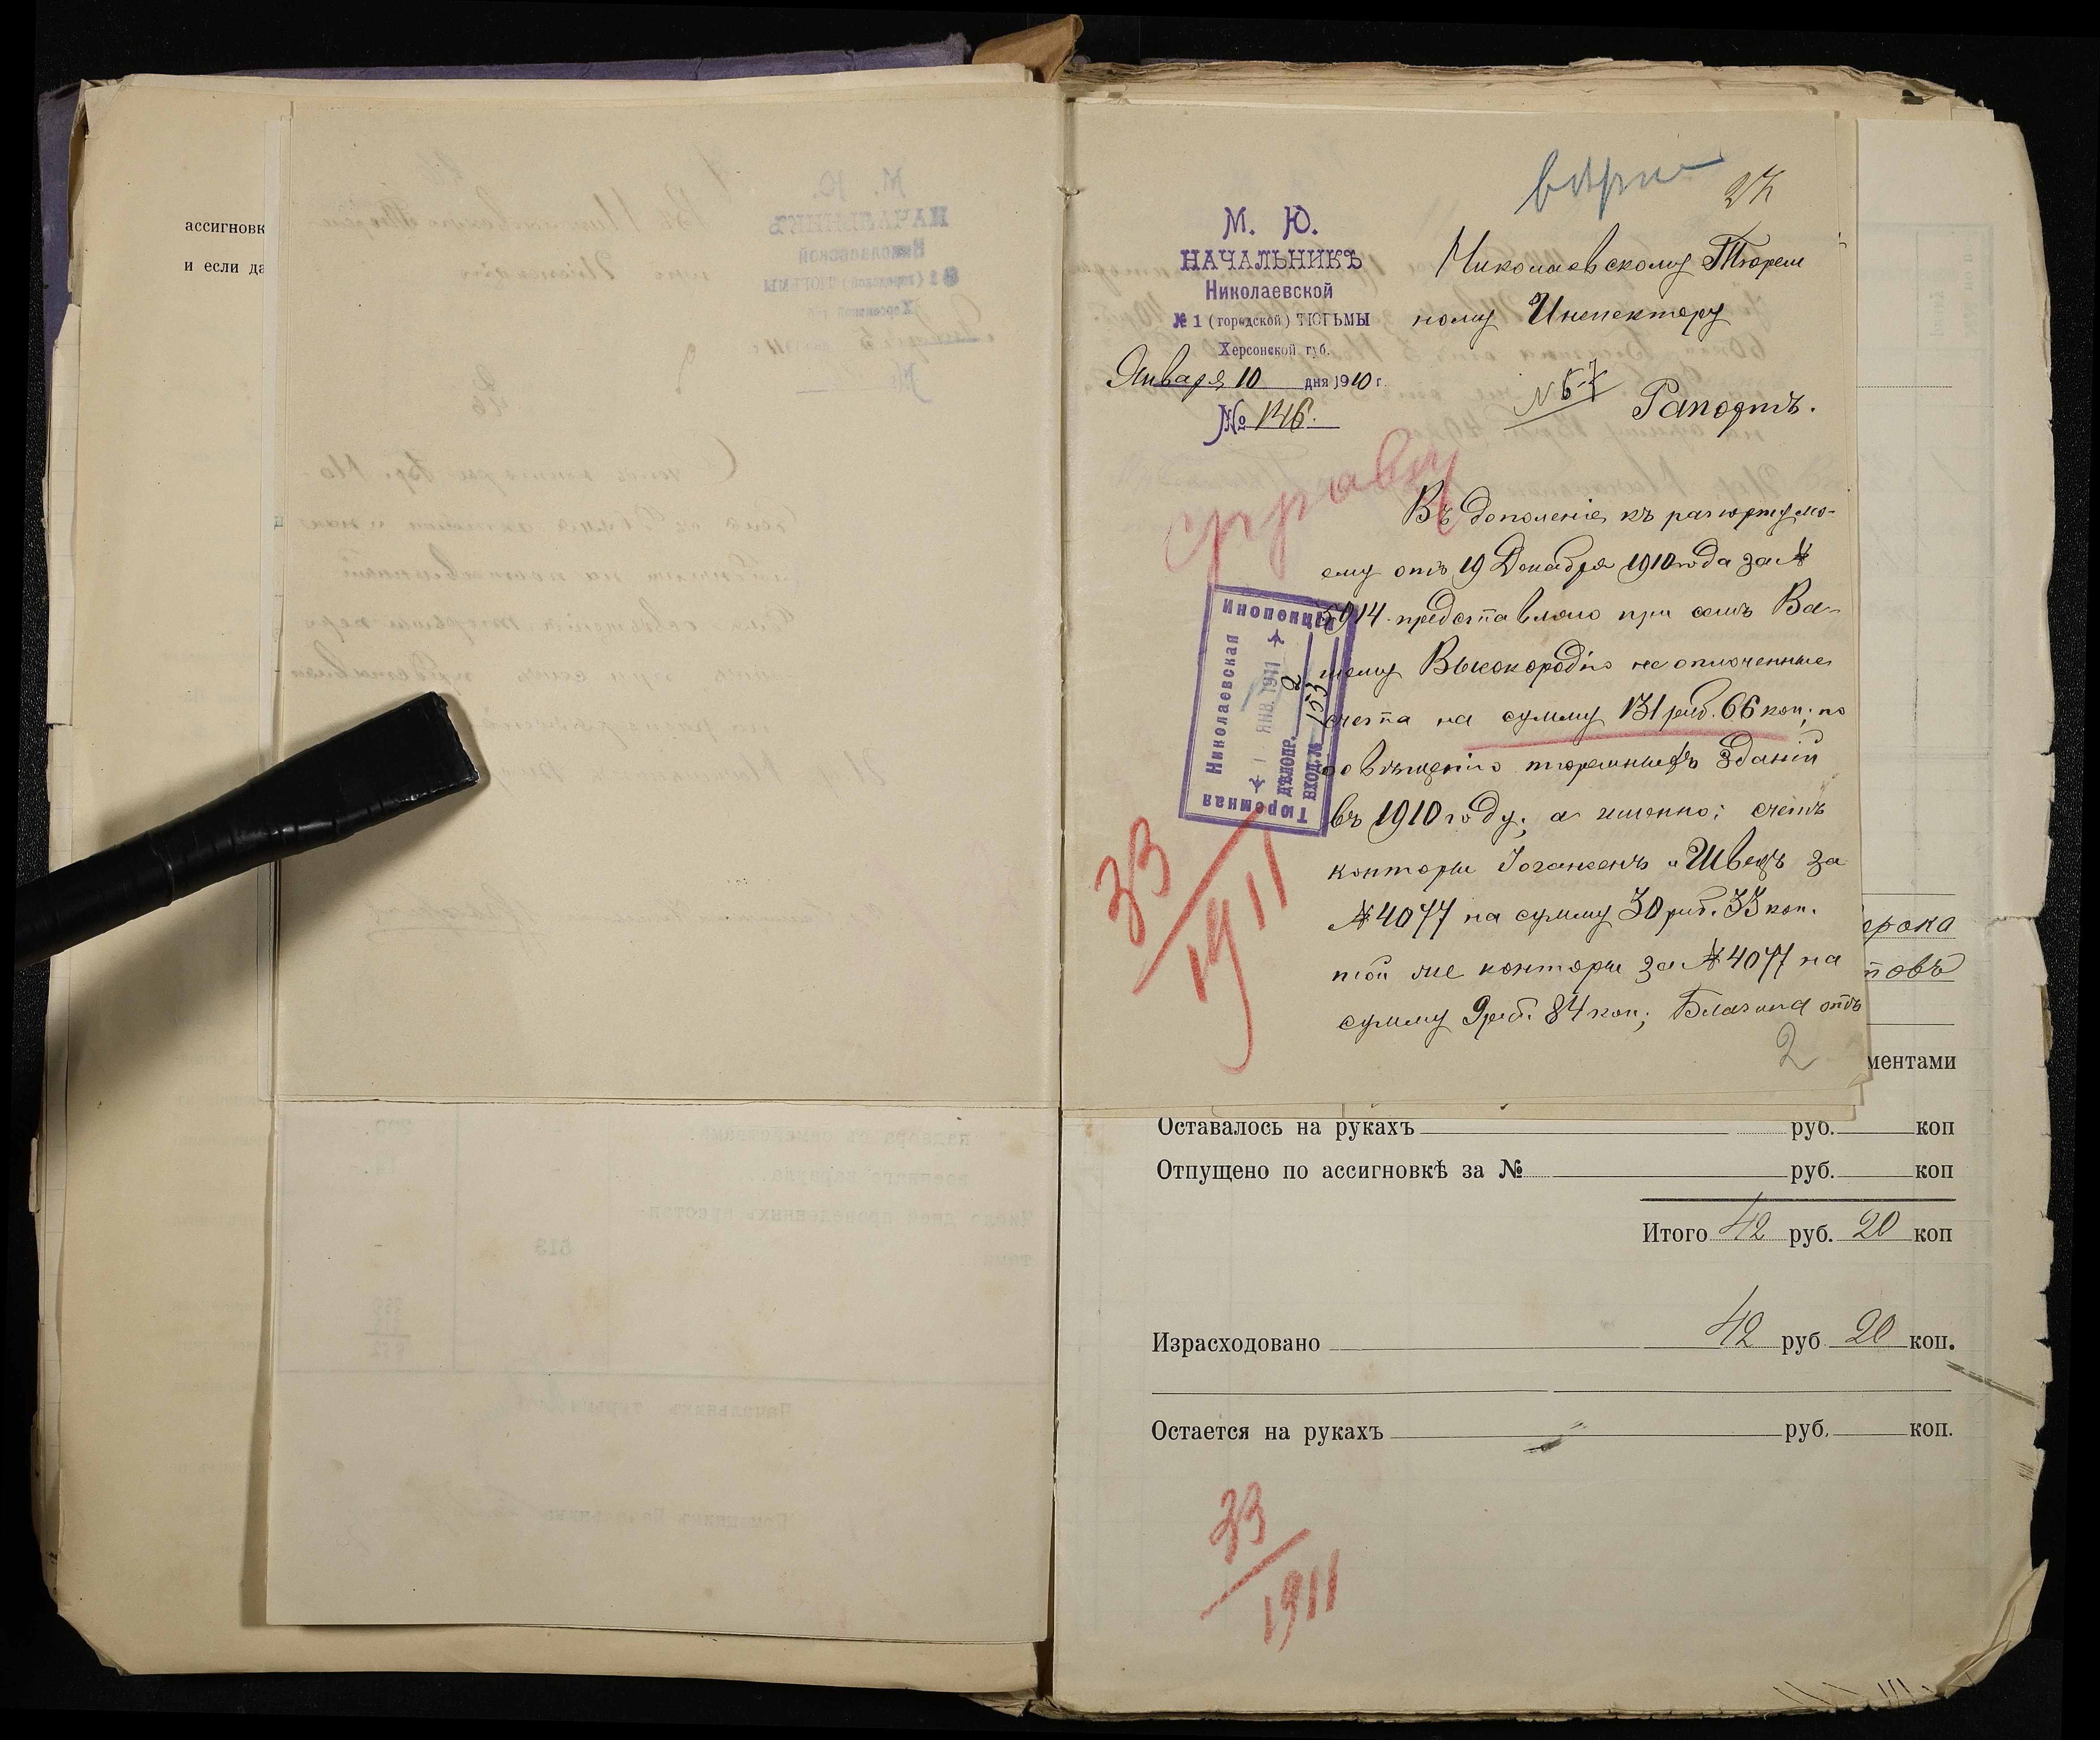 ассигновк
и если да
27
М. Ю.
НАЧАЛЬНИКЪ
Николаевской
№ 1 (городской) ТЮРЬМЫ
Херсонской губ.
Января 10 дня 1910 г.
№ 146.
Николаевскому Тюрем
ному Инспектору
№ 57
Рапортъ.
справку
Въ дополненіе къ рапорту мо-
ему отъ 19 Декабря 1910 года за №
5914 представляю при семъ Ва-
шему Высокородію не оплоченные
счета на сумму 131 руб. 66 коп; по
освѣщенію тюремныхъ зданій
въ 1910 году; а именно: счетъ
конторы Іогансенъ и Шведъ за
№ 4077 на сумму 30 руб. 33 коп.
той же конторы за № 4077 на
сумму 9 руб. 84 коп; Благина отъ
2
Николаевская
Тюремная
Инспекція
ЯНВ. 1911
ДѢЛОПР. 2
ВХОД. № 153
33
1911
ерока
товъ
ментами
Оставалось на рукахъ руб. коп
Отпущено по ассигновкѣ за № руб. коп
Итого 42 руб. 20 коп
Израсходовано 42 руб 20 коп.
Остается на рукахъ руб. коп.
33
1911